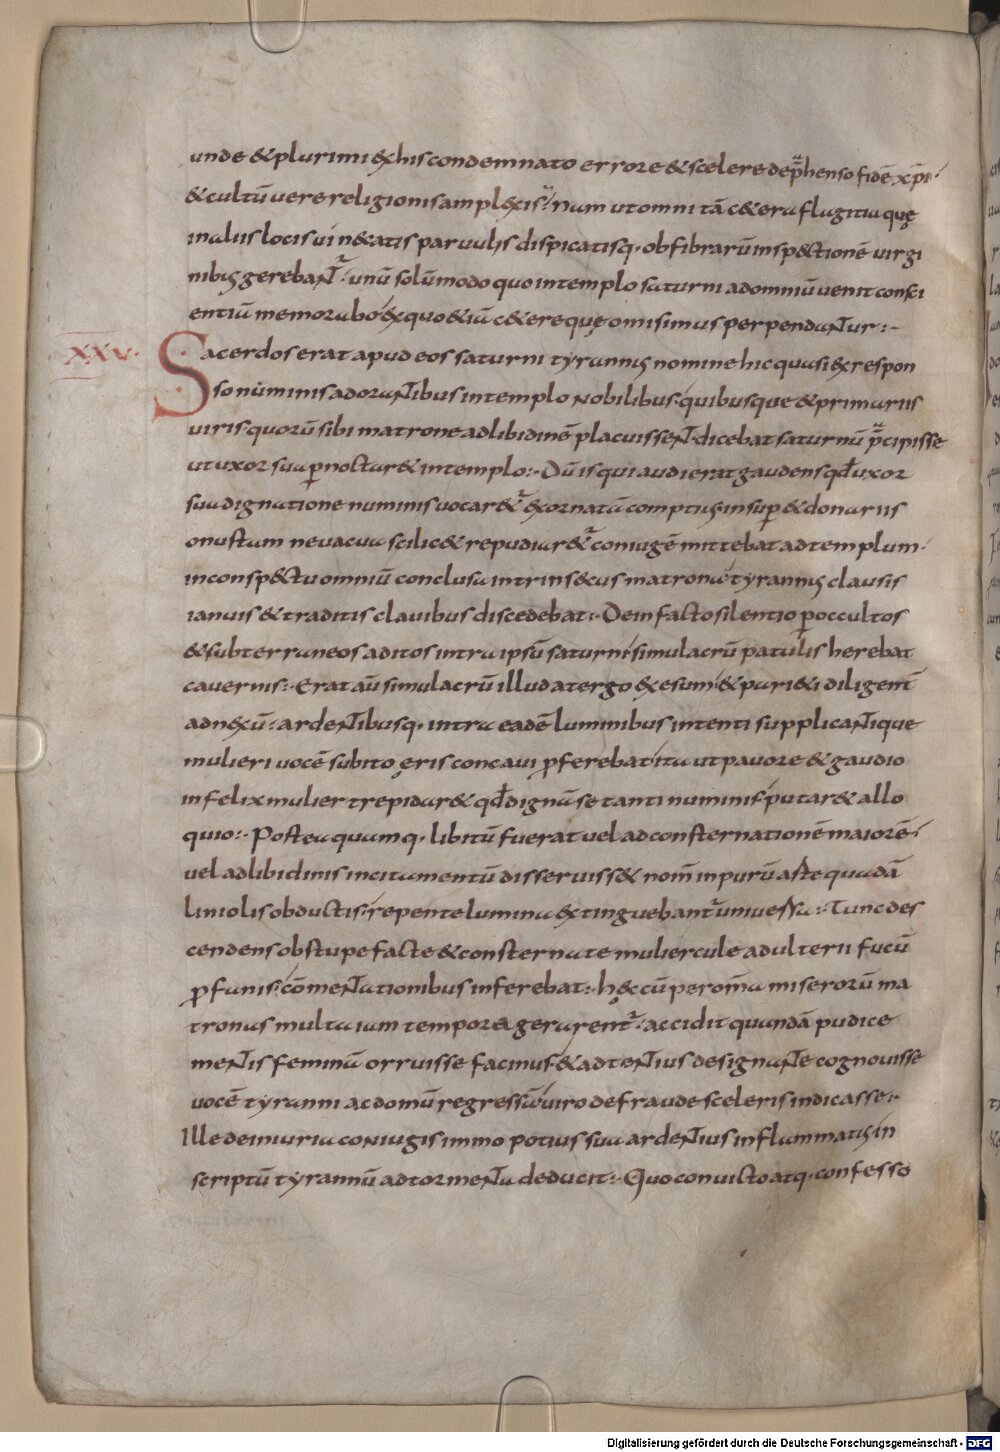 unde & plurimi ex his condemnato errore & scelere dep̄henso fidē xp̄i
& cultū vere religionis amplexi s̄ nam ut omni tā c&era flagitia quę
in aliis locis vi n&catis parvulis dispicatisq· ob fibrarū insp&ctionē virgi
nibus gerebaNt̄ unū solūmodo quo in templo saturni ad omniū venit consci
entiā memorabo ex quo & iā c&ere quę omisimus perpendaNtur:-
XXV·
Sacerdos erat apud eos saturni tyrannus nomine hic quasi ex respon
so nūminis adoraNtibus in templo nobilibus quibusque & primariis
viris quorū sibi matrone ad libidinē placuisseNt· dicebat saturnū p̄cipisse
ut uxor sua p̱noctar& in templo:- Dū is qui audierat gaudens qđ uxor
sua dignatione numinis vocar&̄ exornatā comptius insup̱ & donariis
onustam ne vacua scilic& repudiar&̄ coniugē mittebat ad templum·
in consp&ctu omniū conclusa intrins&cus matrona tyrannus clausis
ianuis & traditis clavibus discedebat:- Dein facto silentio p̱ occultos
& subterraneos aditos intra ipsū saturni simulacrū patulis herebat
cavernis:- Erat aū simulacrū illud a tergo exesum & pari&i diligenT̄
adnexū: ardeNtibusq· intra eadē luminibus intenti supplicaNtique
mulieri vocē subito ęris concavi p̱ferebat ita ut pavore & gaudio
infelix mulier trepidar& qđ dignā se tanti numinis putar& allo
quio:- Postea quamq· libitū fuerat vel ad consternationē maiorē
vel ad libidinis incitamentū disseruiss& nom̄ inpurū aste quadā
liniolis obductis repente lumina extinguebant̄ universa:- Tunc des
cendens obstupefacte & consternate muliercule adulterii fucū
p̱fanis cōmeNtationibus inferebat:- hęc cū per om̄a miserorū ma
tronas multa iam tempora gerarent̄· accidit quandā pudice
meNtis feminā orruisse facinus & adteNtius designaNte cognovisse
vocē tyranni ac domū regressā viro de fraude sceleris indicasse:-
Ille de iniuria coniugis immo potius sua ardeNtius inflammatus in
scriptū tyrannū ad tormeNta deducit:- Quo convicto atq· confesso
Digitalisierung gefördert durch die Deutsche Forschungsgemeinschaft - DFG